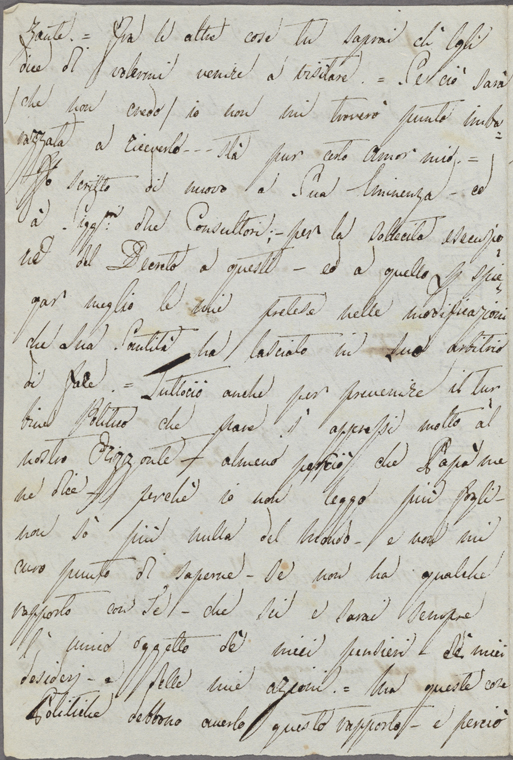 Zante. = Frà le altre cose tu saprai ch' Egli
dice di volermi venire à visitare. = Se ciò sarà
/che non credo/ io non mi troverò punto imba=
razzata a riceverlo --- stà pur certo Amor mio. =
Hò scritto di nuovo a Sua Eminenza - ed
à Sigg.ri due Consultori; - per la sollecita esecuzio=
ne del Decreto a questi - ed a quello p. spie=
gar meglio le mie pretese nelle modificazioni
che Sua Santità ha lasciato in suo arbitrio
di fare. = Tuttociò anche per prevenire il tur
bine Politico che pare s' appressi molto al
nostro Orizzonte + almeno perciò che Papà me
ne dice + perchè io non leggo più fogli -
non sò più nulla del mondo - e non mi
curo punto di saperne - se non ha qualche
rapporto con Te - che sei e sarai sempre
l' unico oggetto de' miei pensieri - de' miei
desiderj - e delle mie azioni. = Ma queste cose
Politiche debbono averlo questo rapporto - e perciò